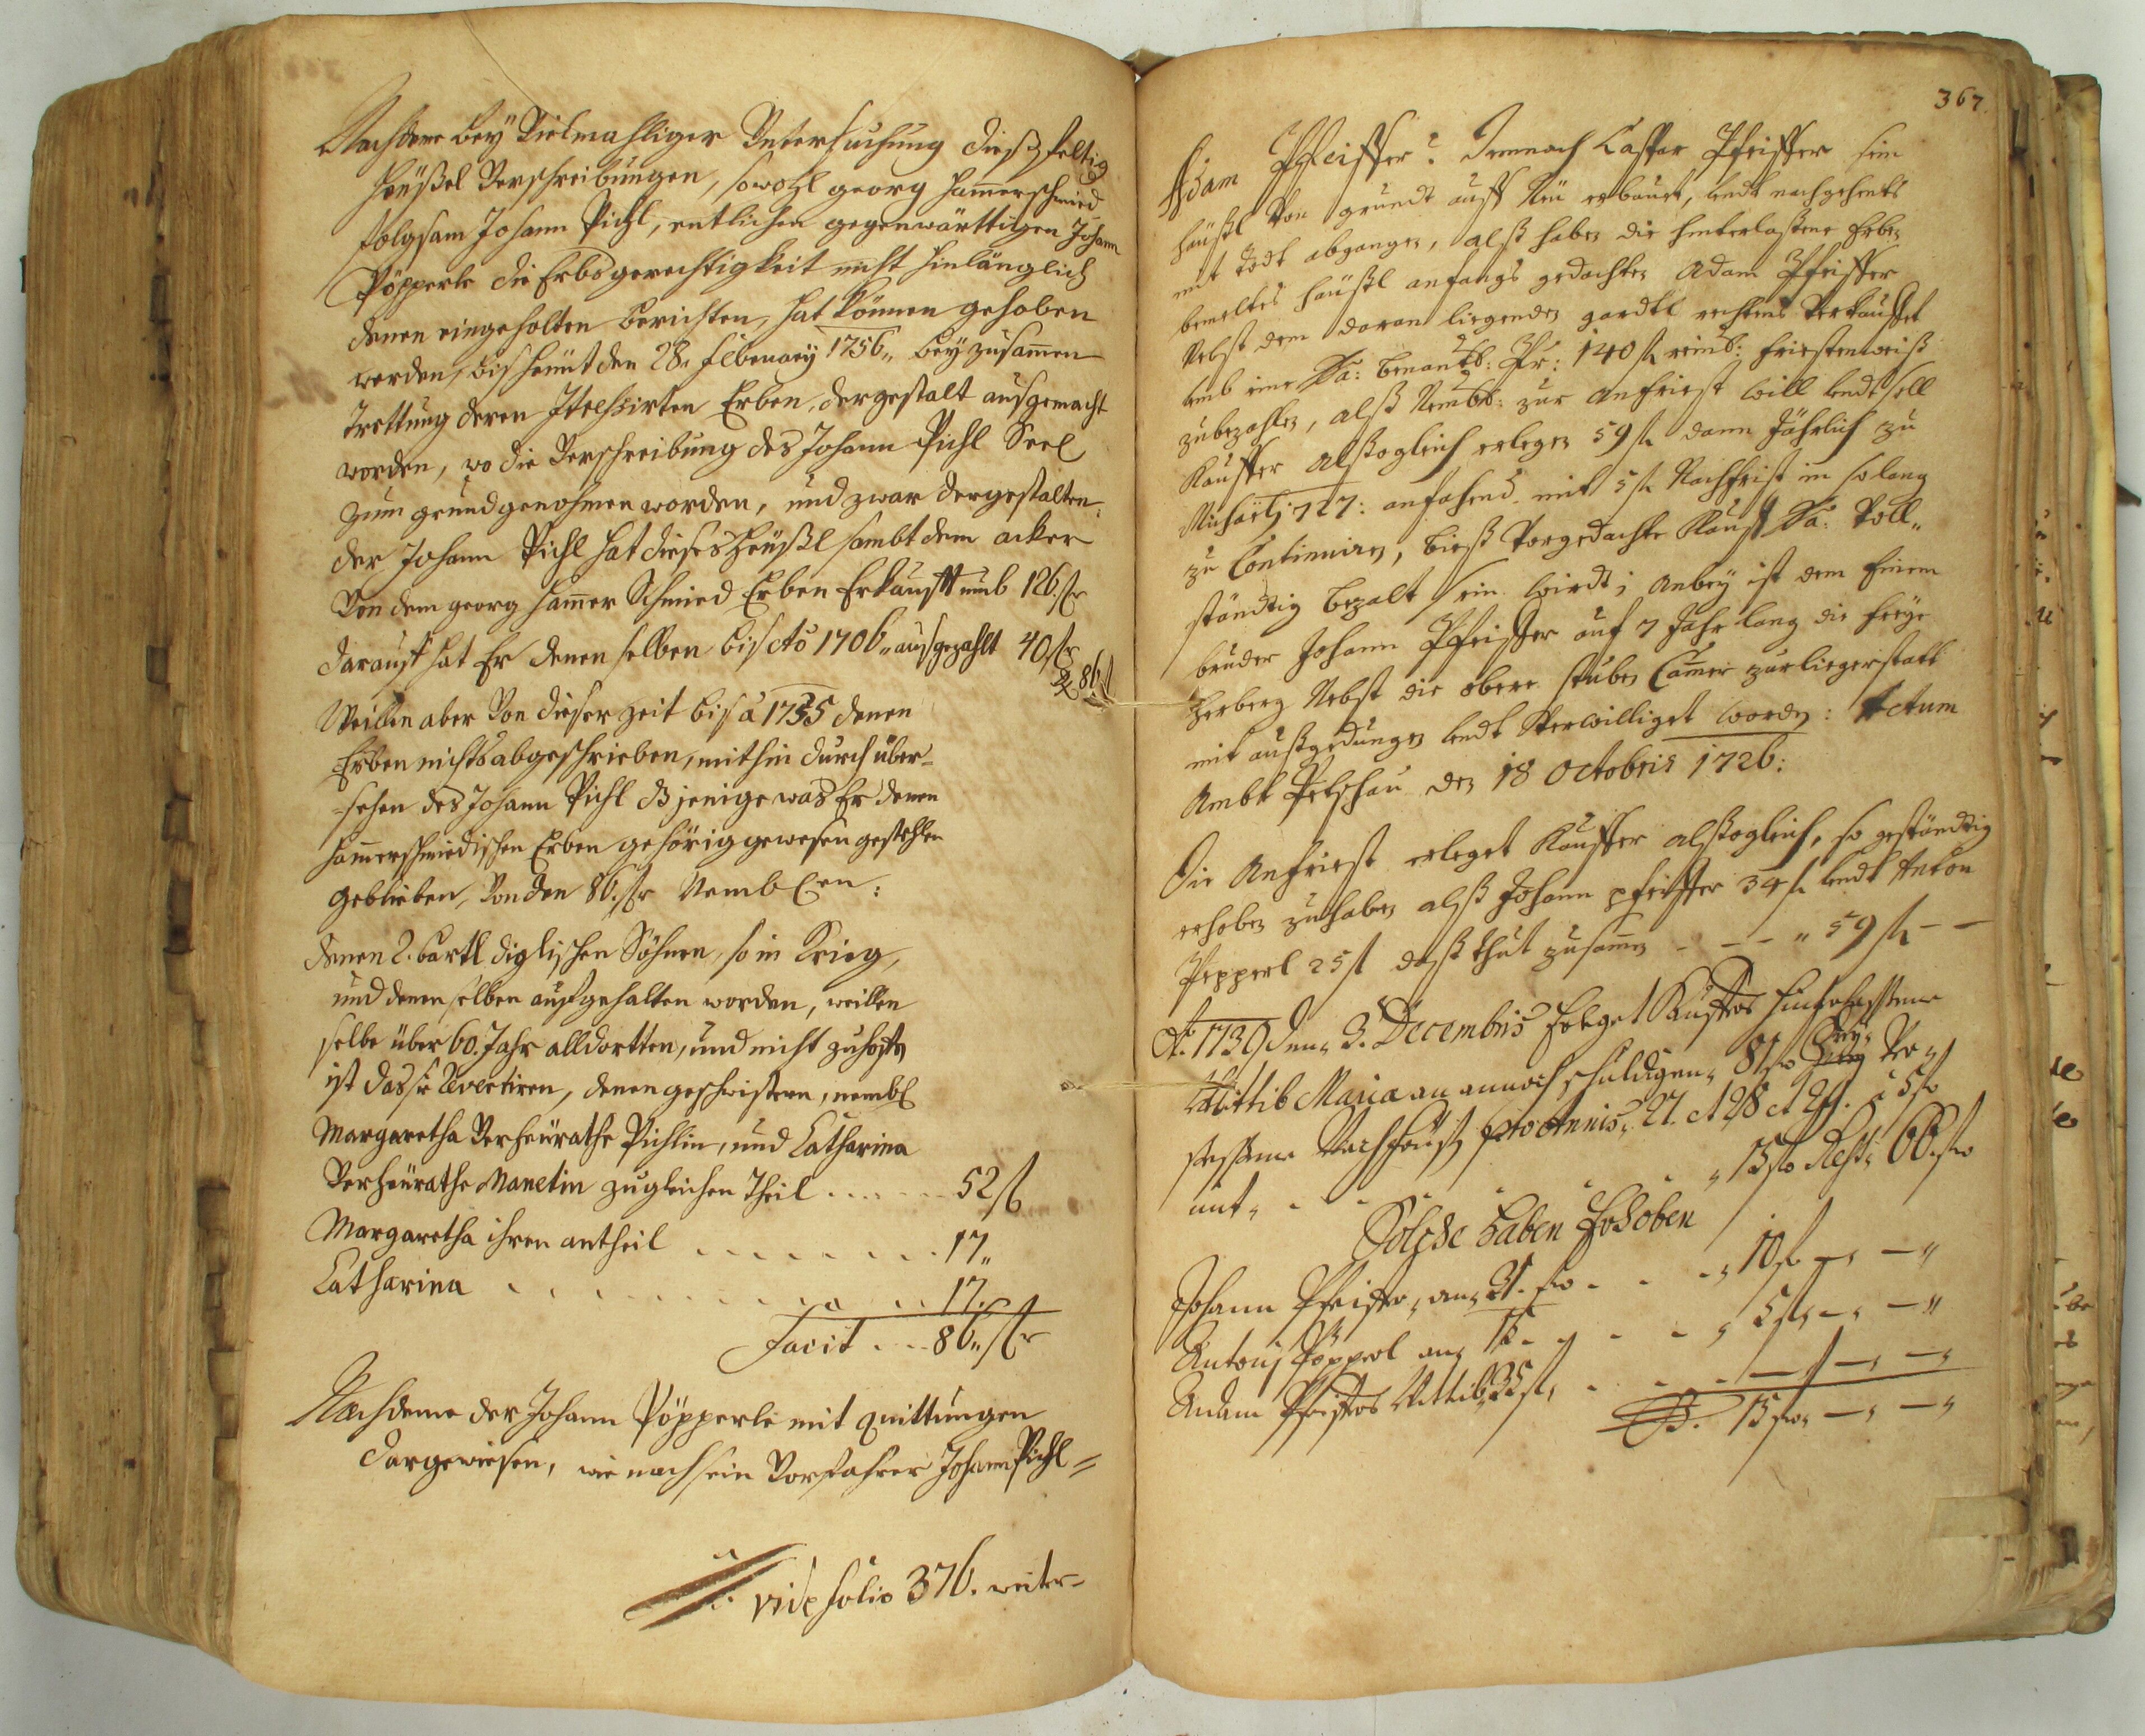 Nachdeme beÿ Vielmahliger Untersuchung dießfeltig
Heüßel Verschreibungen, sowohl georg Hamerschmied
folgsam Johann Pichl, entlichen gegenwärttigen Johann
Pöpperle die Erbsgerechtigkeit nicht hinlänglich
denen eingeholten berichten, hat können gehoben
werden, bis heünt den 28. Februarÿ 1756„ beÿ zusamen
trettung deren Erben, dergestalt ausgemacht
worden, wo die Verschreibung des Johann Pichl Seel
zum grund genohmen worden, und zwar dergestalten:
der Johann Pichl hat dieses Heüßl sambt dem acker
Von dem georg Hamer Schmied Erben Erkaufft umb 126. fr
darauf hat Er denen selben bis Ao 1706„ ausgezahlt 40 fr
R 86 fl
Weillen aber Von dieser Zeit bis a 1755 denen
Erben nichts abgeschrieben, mithin durch über-
sehen des Johann Pichl dz jenige was Er denen
Hamerschmiedischen Erben gehörig gewesen
geblieben, Von den 86. fr Nemblen:
denen 2. bartl diglischen Söhnen, so in Krieg,
und denen selben aufgehalten worden, weillen
selbe über 60. Jahr alldortten, und nicht
ist dasse denen geschwistern, nembl
Margaretha Verheürathe Pichlin, und Catharina
Verheürathe Manetin zu gleichen Theil . . . . . . . 52 fl
Margaretha ihren antheil . . . . . . . . . 17„
Catharina . . . . . . . . . . . 17.
Facit . . . 86„ fr
Nachdeme der Johann Pöpperle mit quittungen
dargewiesen, wie nach sein Vorfahrer Johann Pichl =
vide folio 376. weiter-
367
Adam Pfeiffer: Demnach Caspar Pfeiffer sein
häußl Von grundt auff Neü erbauet, undt nachgehents
mit todt abgangen, alß haben die hinterlaßene Erben
bemeltes häußl anfangs gedachten Adam Pfeiffer
Nebst dem daran liegenden gardtl rechtens Verkauffet
umb eine Sa: benantl: Pr: 140 fl reins: friestenweiß
zubezahlen, alß Nembl: zur anfriest will undt soll
Kauffer alßogleich erlegen 59 fl dann Jährlich zu
Michaeli 727: anfahend mit 5 fl Nachfrist in so lang
zu Continuiren, bieß Vorgedachte Kauff Sa: Voll„
ständtig bezalt sein wirdt; anbeÿ ist dem Einem
bruder Johann Pfeiffer auf 7 Jahr lang die freÿe
Herberg Nebst die obere stuben Camer zur liegerstatt
mit außgedungen undt Verwilliget worden: Actum
Ambt Petschau den 18 Octobris 1726:
Die Anfriest erleget Kauffer alßogleich, so geständtig
erhoben zuhaben alß Johann pfeiffer 34 fl undt Anton
Pepperl 25 fl daß thut zusamen - - - „ 59 fl - -
Ao. 1730 den„ 3. Decembris Erleget Käuffers hinterlassene
Wittib Maria an annoch schuldigen„ 81 fr
Beÿ- Ver„
sessene Nachfrist pro Annis„ 27. et 28 et 29. a 5 fr
mit„ - - - - - „ 15 fr Rest„ 66. fr
Solche haben Erhoben
Johann Pfeiffer, an„ 21. fr - - - „ 10 fr —„ —„
Antonj Pöpperl an„ 15 - „ - - „ 5 fl„ —„ —„
Andam Pfeiffers Wittib„ 35 fl„ - - - — fl —„ —„
S. 15 fr„ —„ —„